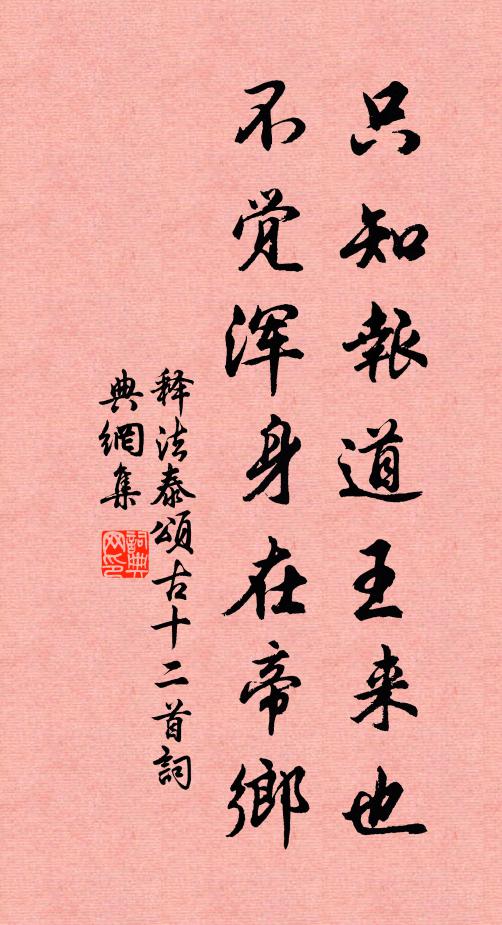 只知報道王来也
不觉浑身在帝鄉
释法泰頌古十二首詞
典網集
詞典网印